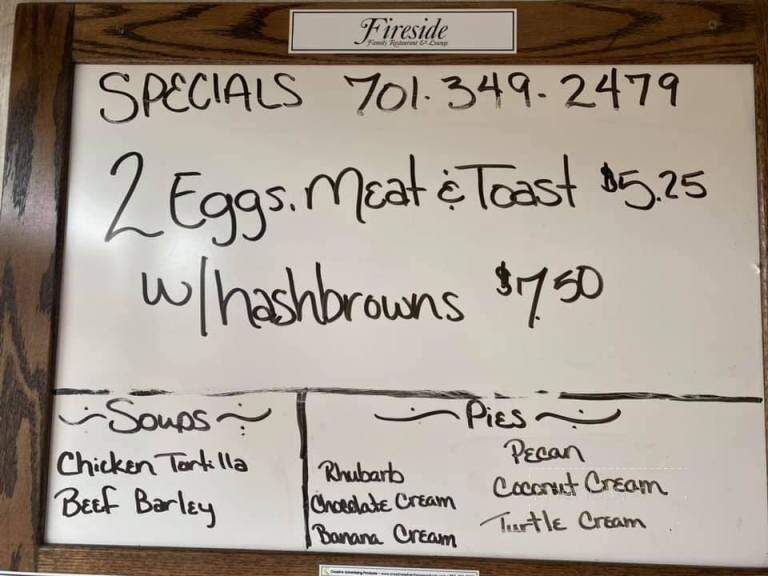 Fireside
Family Restaurant & Lounge
SPECIALS 701.349.2479
2 Eggs, Meat & Toast $5.25
w/hashbrowns $7.50
Soups
Chicken Tortilla
Beef Barley
Pies
Rhubarb
Chocolate Cream
Banana Cream
Pecan
Coconut Cream
Turtle Cream